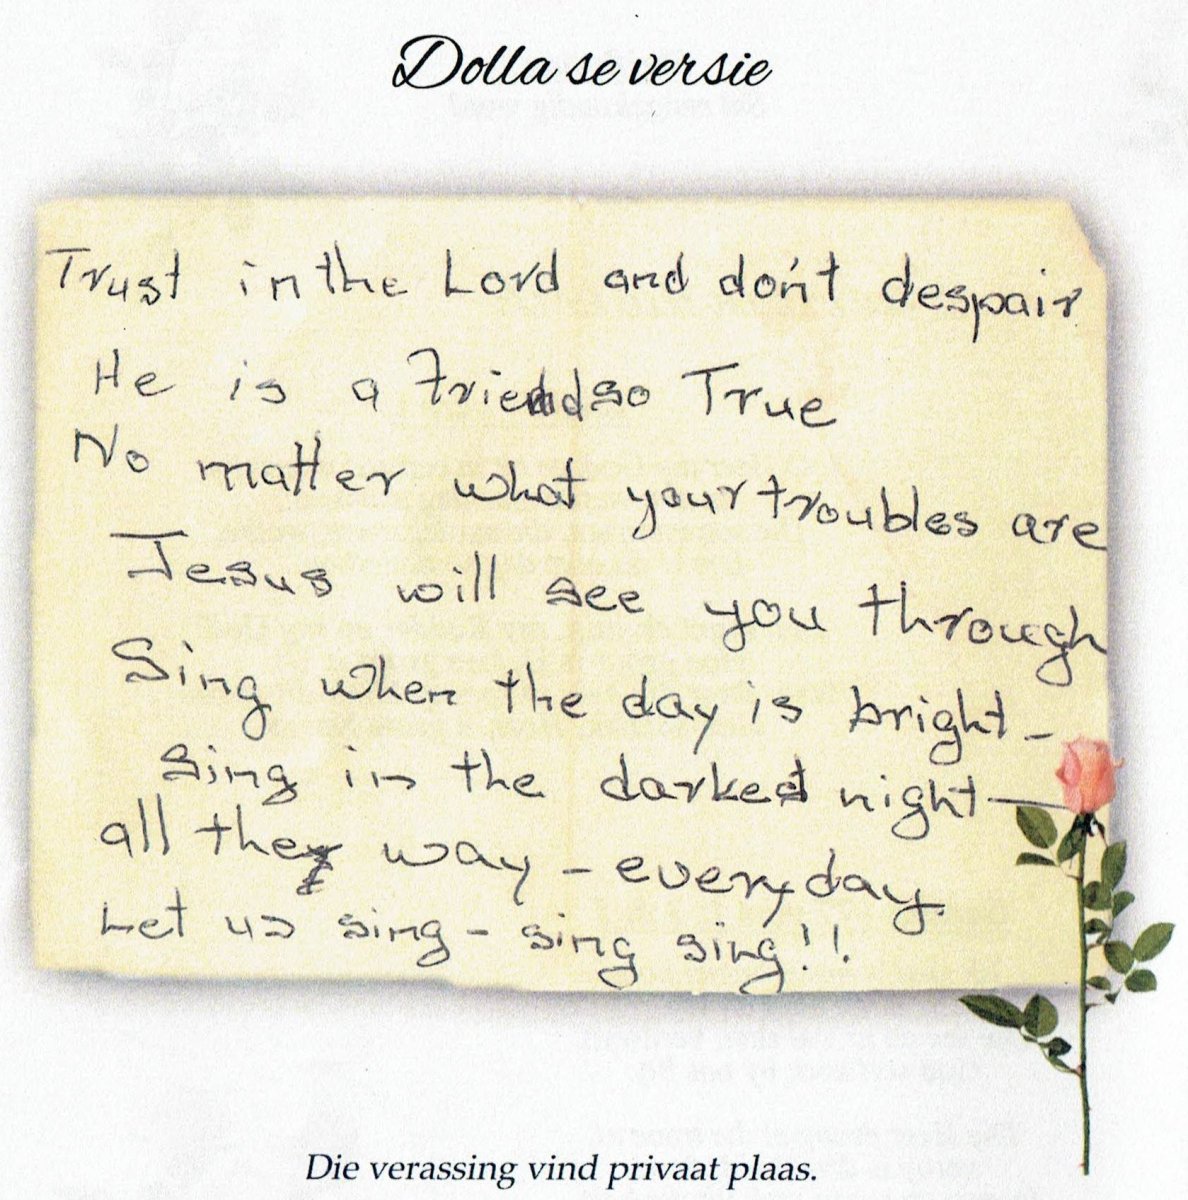 Dolla se versie
Trust in the Lord and don't despair
He is a Friend so True
No matter what your troubles are
Jesus will see you through
Sing when the day is bright -
Sing in the darked night —
all the way - everyday.
Let us sing - sing sing!!.
Die verassing vind privaat plaas.